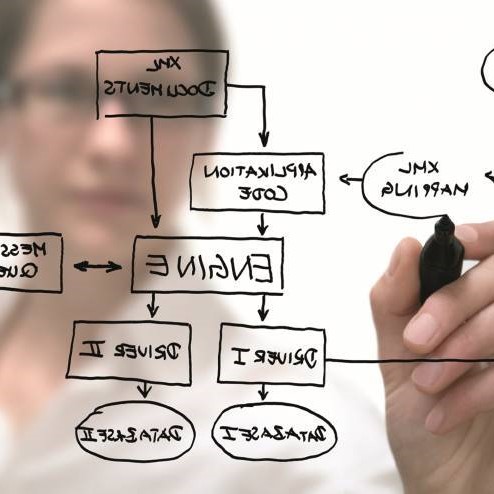 XML
DOCUMENTS
APPLIKATION
CODE
XML
MAPPING
MESS
QUE
ENGINE
DRIVER II
DRIVER I
DATABASE II
DATABASE I